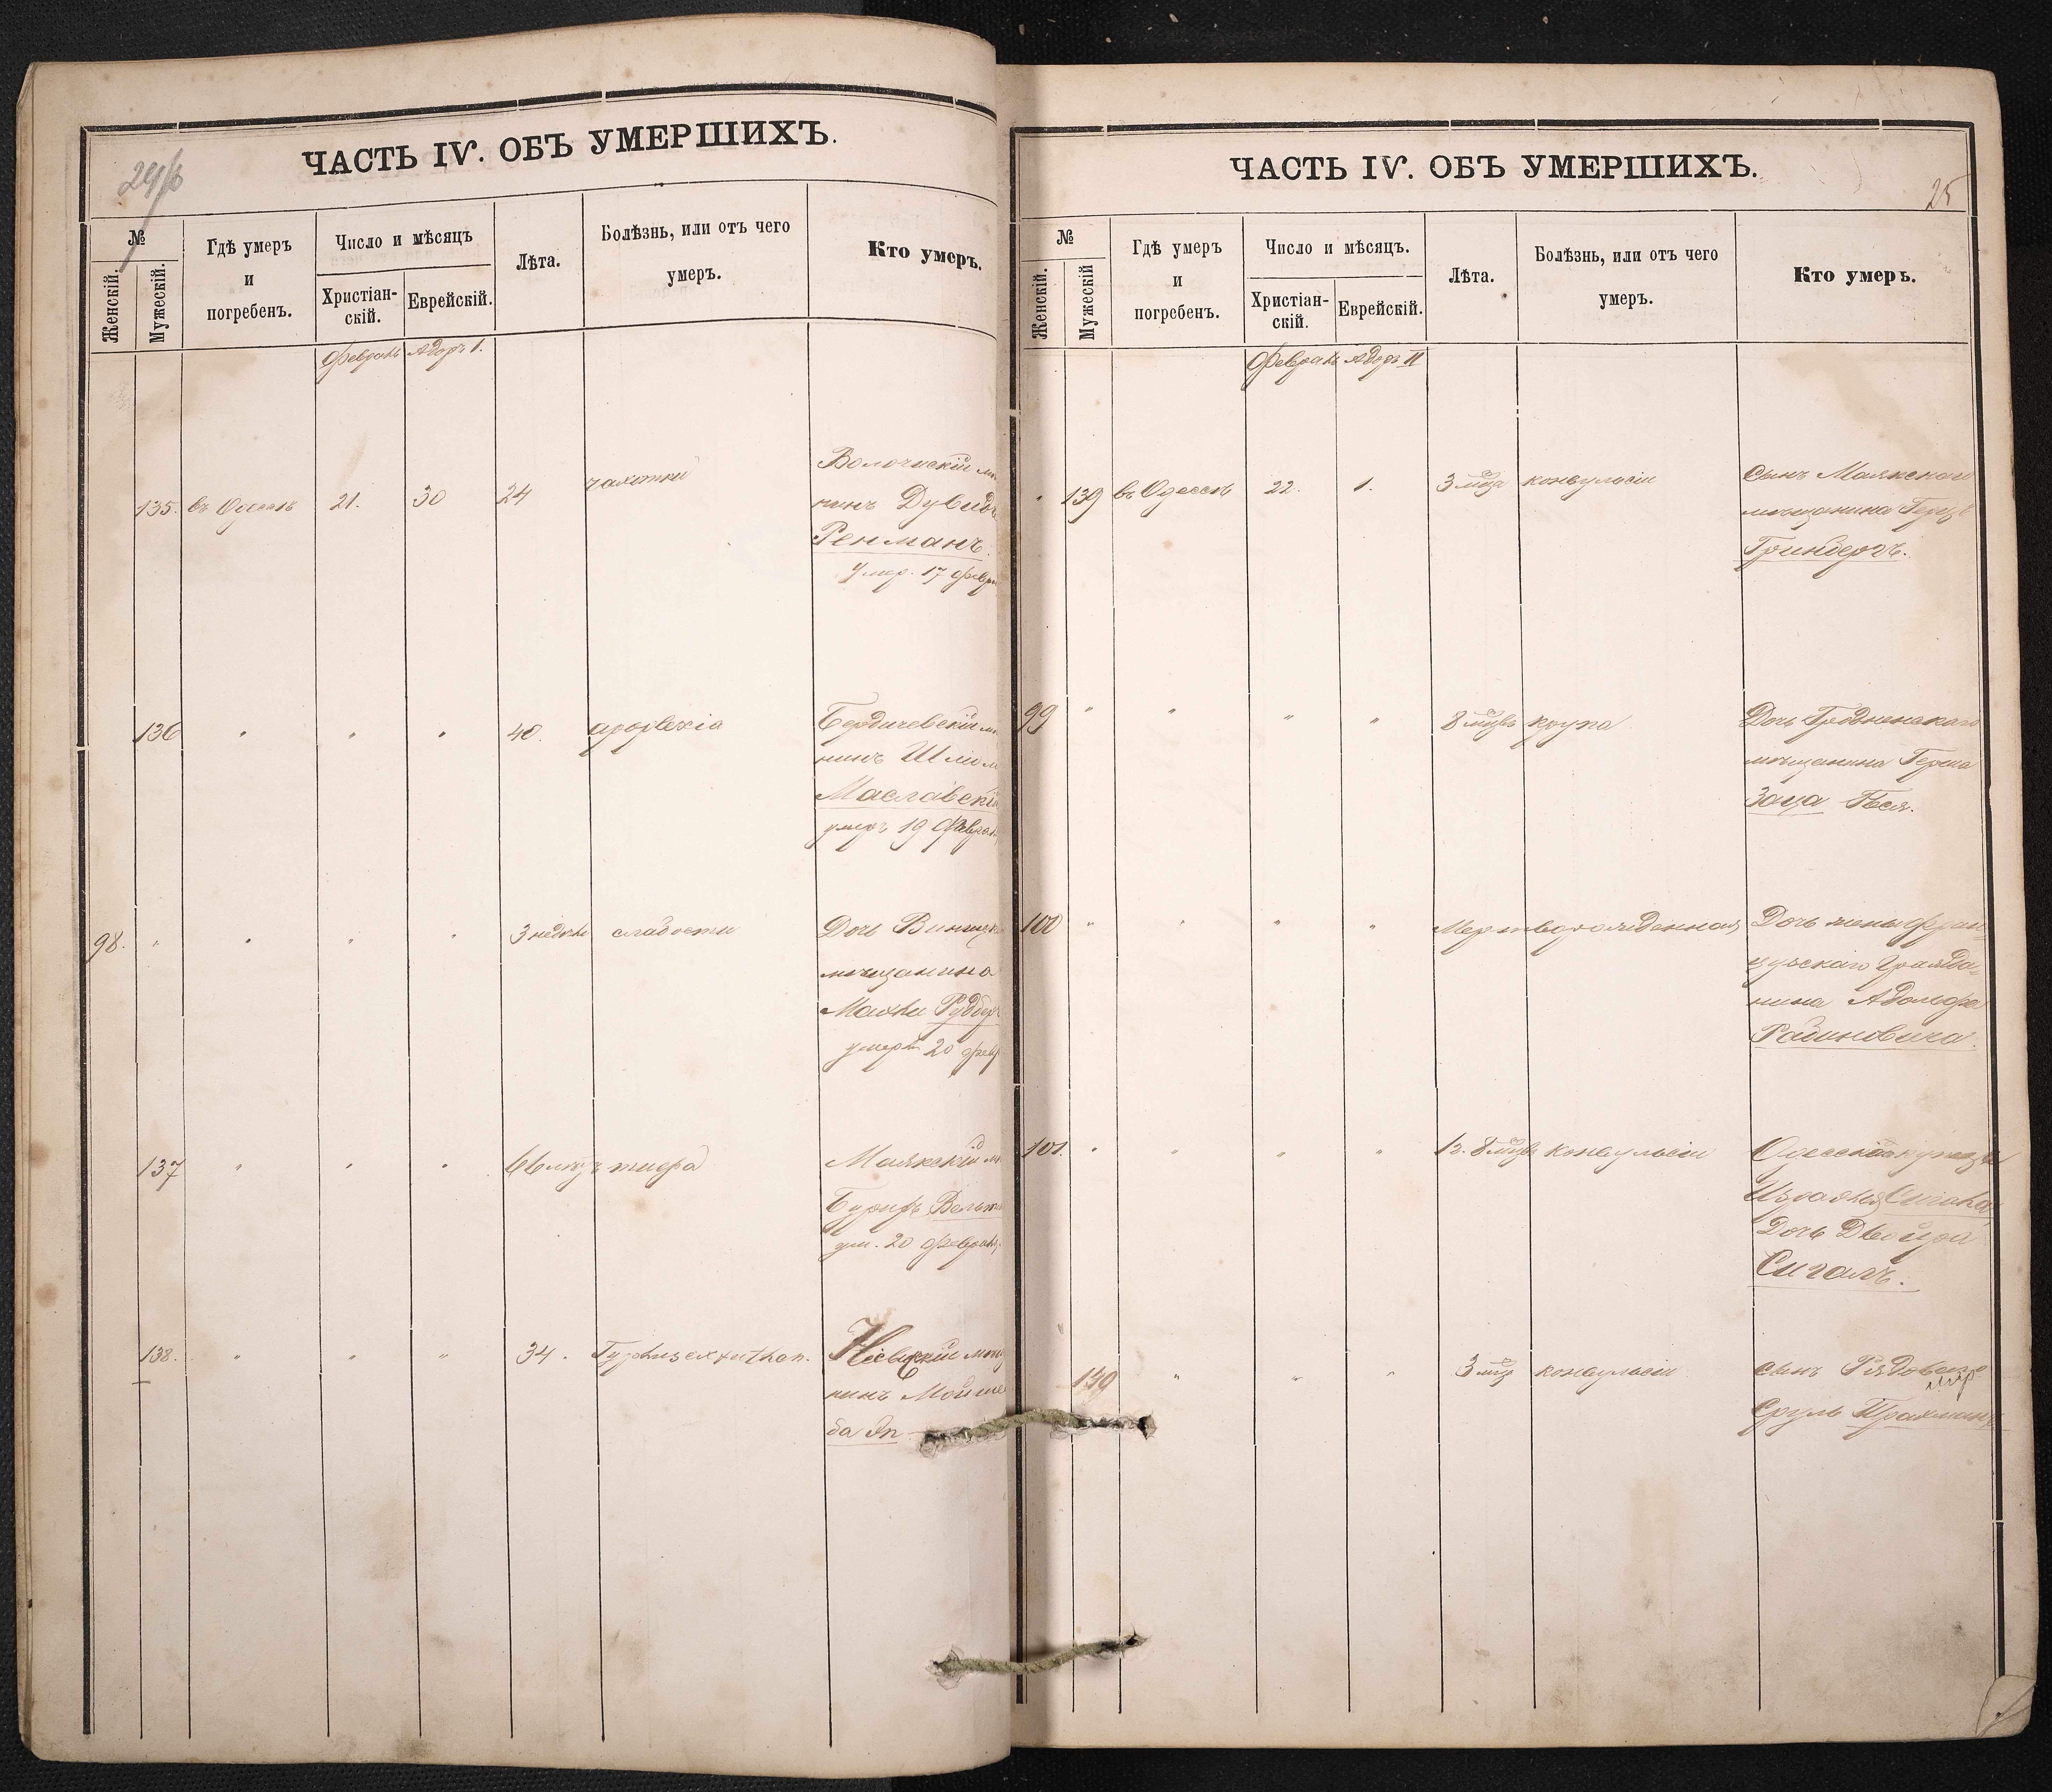 ЧАСТЬ IV. ОБЪ УМЕРШИХЪ.
№
Женскій.
Мужескій.
Гдѣ умеръ
и
погребенъ.
Число и мѣсяцъ
Христіан-
скій.
Еврейскій.
Лѣта.
Болѣзнь, или отъ чего
умеръ.
Кто умеръ.
Февраль Адоръ 1.
135. въ Одессѣ 21. 30 24 чахотки
Волочискій
нинъ Дувидъ
Ренманъ.
Умер. 17 февр
136 " " " 40. apoplexia
Бердичевскій
нинъ Шлiом
Маславскій
умеръ 19 Феврал
98. " " " " 3 недѣли слабости
Дочь
мѣщанина
Махли
умерла 20 февр
137 " " " тифа
Маякскій
ум. 20 Феврал
138. " " " 34. Typhus exanthem.
Кіевскій мѣщ
нинъ Мойше
ЧАСТЬ IV. ОБЪ УМЕРШИХЪ.
25
№
Женскій.
Мужескій
Гдѣ умеръ
и
погребенъ.
Число и мѣсяцъ.
Христіан-
скій.
Еврейскій.
Лѣта.
Болѣзнь, или отъ чего
умеръ.
Кто умеръ.
Февраль Адоръ II
" 139 въ Одессѣ 22. 1. 3 мѣс конвульсіи
Сынъ Маякскаго
мѣщанина Герш
Гринбергъ.
99 " " " " 8 мѣсцъ крупа
Дочь Гродненскаго
мѣщанина Герша
Заца Песя.
100 " " " " Мертворожденная
Дочь жены фран-
цузскаго гражда-
нина Адольфа
Рабиновича.
101. " " " " 1г. 8 мѣсцъ конвульсіи
Одесскаго купца
Израиля Сигала
Дочь Двойра
Сигалъ.
" " " 3 мѣс конвульсіи
сынъ Рядоваго
Сруль